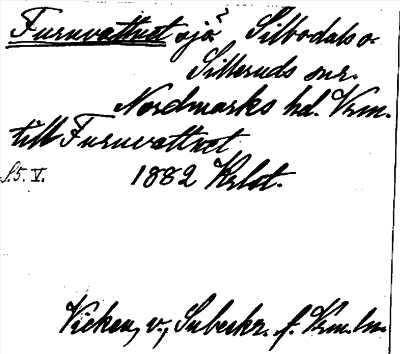 Furuvattnet sjö? Silbodals o.
Silleruds snr.
Nordmarks hd. Vrm.
till Furuvattnet
S.5. V. 1882 Krlst.
Vicken, v., Suberkr. f. Vrm. ln.